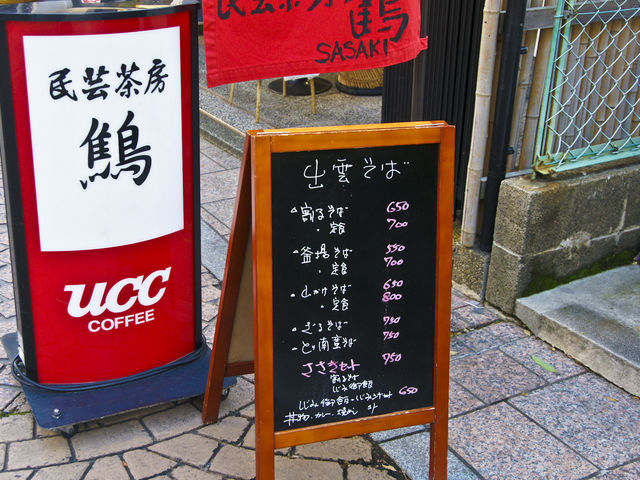 民芸茶房
鶴
SASAKI
民芸茶房
鶴
UCC
COFFEE
出雲そば
割るそば 650
・定食 700
釜揚そば 550
・定食 700
山かけそば 650
・定食 800
ざるそば 750
とり南蛮そば 750
ささきセット 750
割るそば
しじみ御飯
しじみ御飯・しじみ汁セット 650
丼物・カレー・焼めし